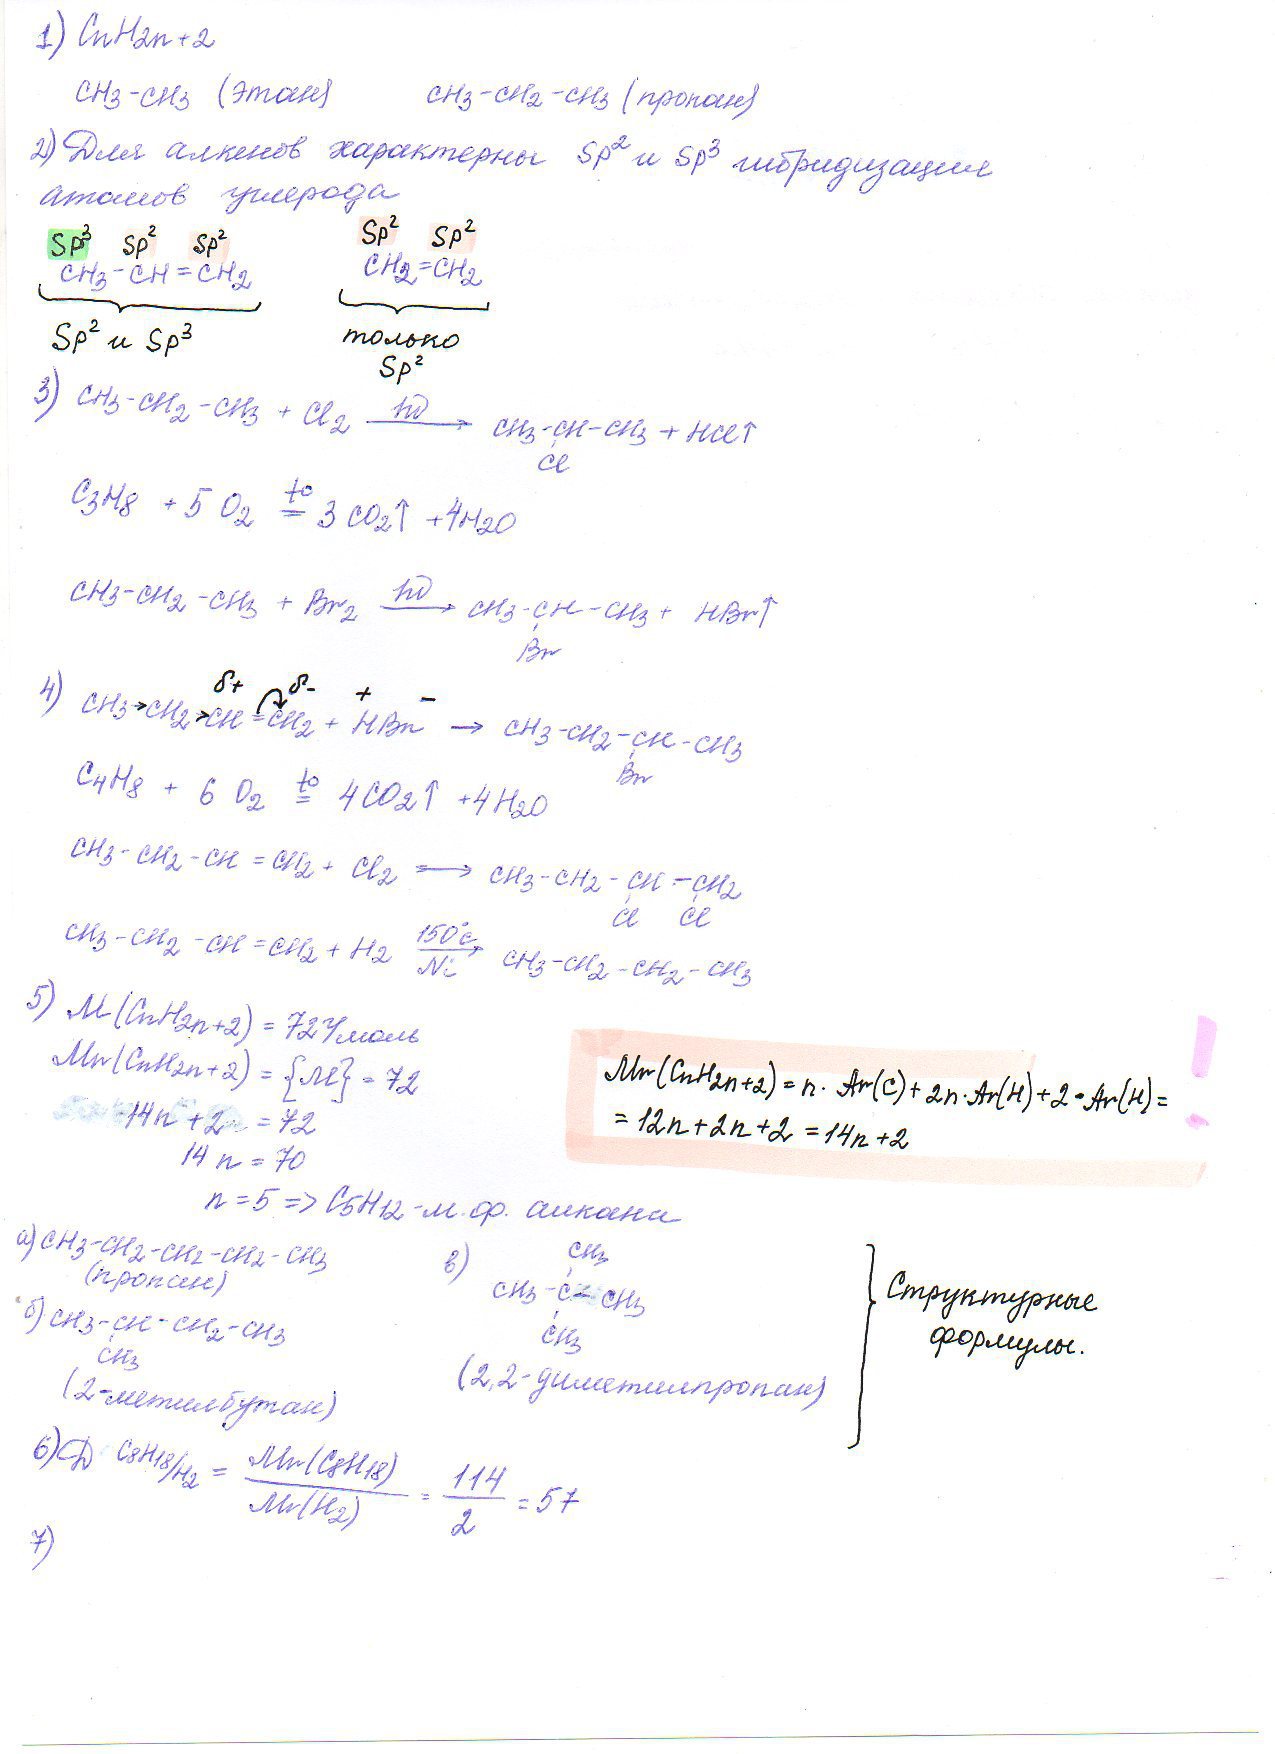 1) CnH2n+2
CH3-CH3 (этан) CH3-CH2-CH3 (пропан)
2) Для алкенов характерны Sp² и Sp³ гибридизации
атомов углерода
Sp³ Sp² Sp² Sp² Sp²
CH3-CH=CH2 CH2=CH2
Sp² и Sp³ только
Sp²
3) CH3-CH2-CH3 + Cl2 hν→ CH3-CH-CH3 + HCl↑
Cl
C3H8 + 5 O2 t°= 3 CO2↑ + 4H2O
CH3-CH2-CH3 + Br2 hν→ CH3-CH-CH3 + HBr↑
Br
δ+ δ- + -
4) CH3→CH2→CH=CH2 + HBr → CH3-CH2-CH-CH3
Br
C4H8 + 6 O2 t°= 4CO2↑ + 4H2O
CH3-CH2-CH=CH2 + Cl2 → CH3-CH2-CH-CH2
Cl Cl
CH3-CH2-CH=CH2 + H2 150°C→ CH3-CH2-CH2-CH3
Ni
5) M(CnH2n+2) = 72 г/моль
Mr(CnH2n+2) = {M} = 72
14n+2 = 72
14n = 70
n = 5 => C5H12 - м.ф. алкана
Mr(CnH2n+2) = n· Ar(C) + 2n·Ar(H) + 2·Ar(H) =
= 12n+2n+2 = 14n+2
!
а) CH3-CH2-CH2-CH2-CH3
(пропан)
б) CH3-CH-CH2-CH3
CH3
(2-метилбутан)
в) CH3
CH3-C-CH3
CH3
(2,2-диметилпропан)
Структурные
формулы.
6) D C8H18/H2 = Mr(C8H18) / Mr(H2) = 114 / 2 = 57
7)